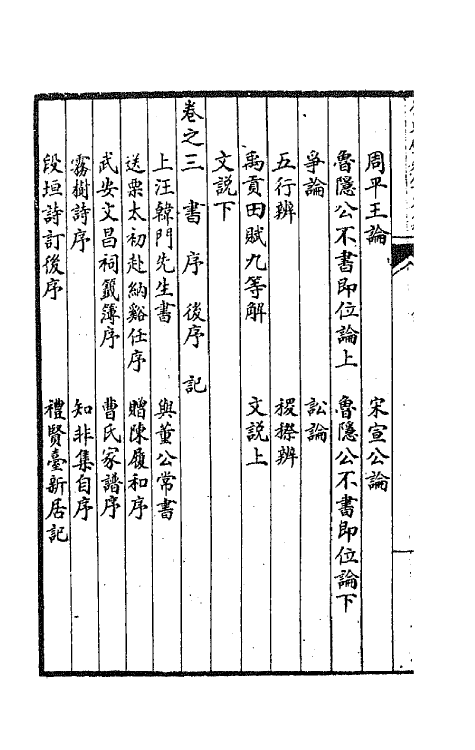 周平王論　宋宣公論
魯隱公不書即位論上　魯隱公不書即位論下
爭論　訟論
五行辨　稷𥛱辨
禹貢田賦九等解　文説上
文説下
卷之三　書　序　後序　記
上汪韓門先生書　與董公常書
送栗太初赴納谿任序　贈陳履和序
武安文昌祠籤簿序　曹氏家譜序
霧樹詩序　知非集自序
段垣詩訂後序　禮賢臺新居記